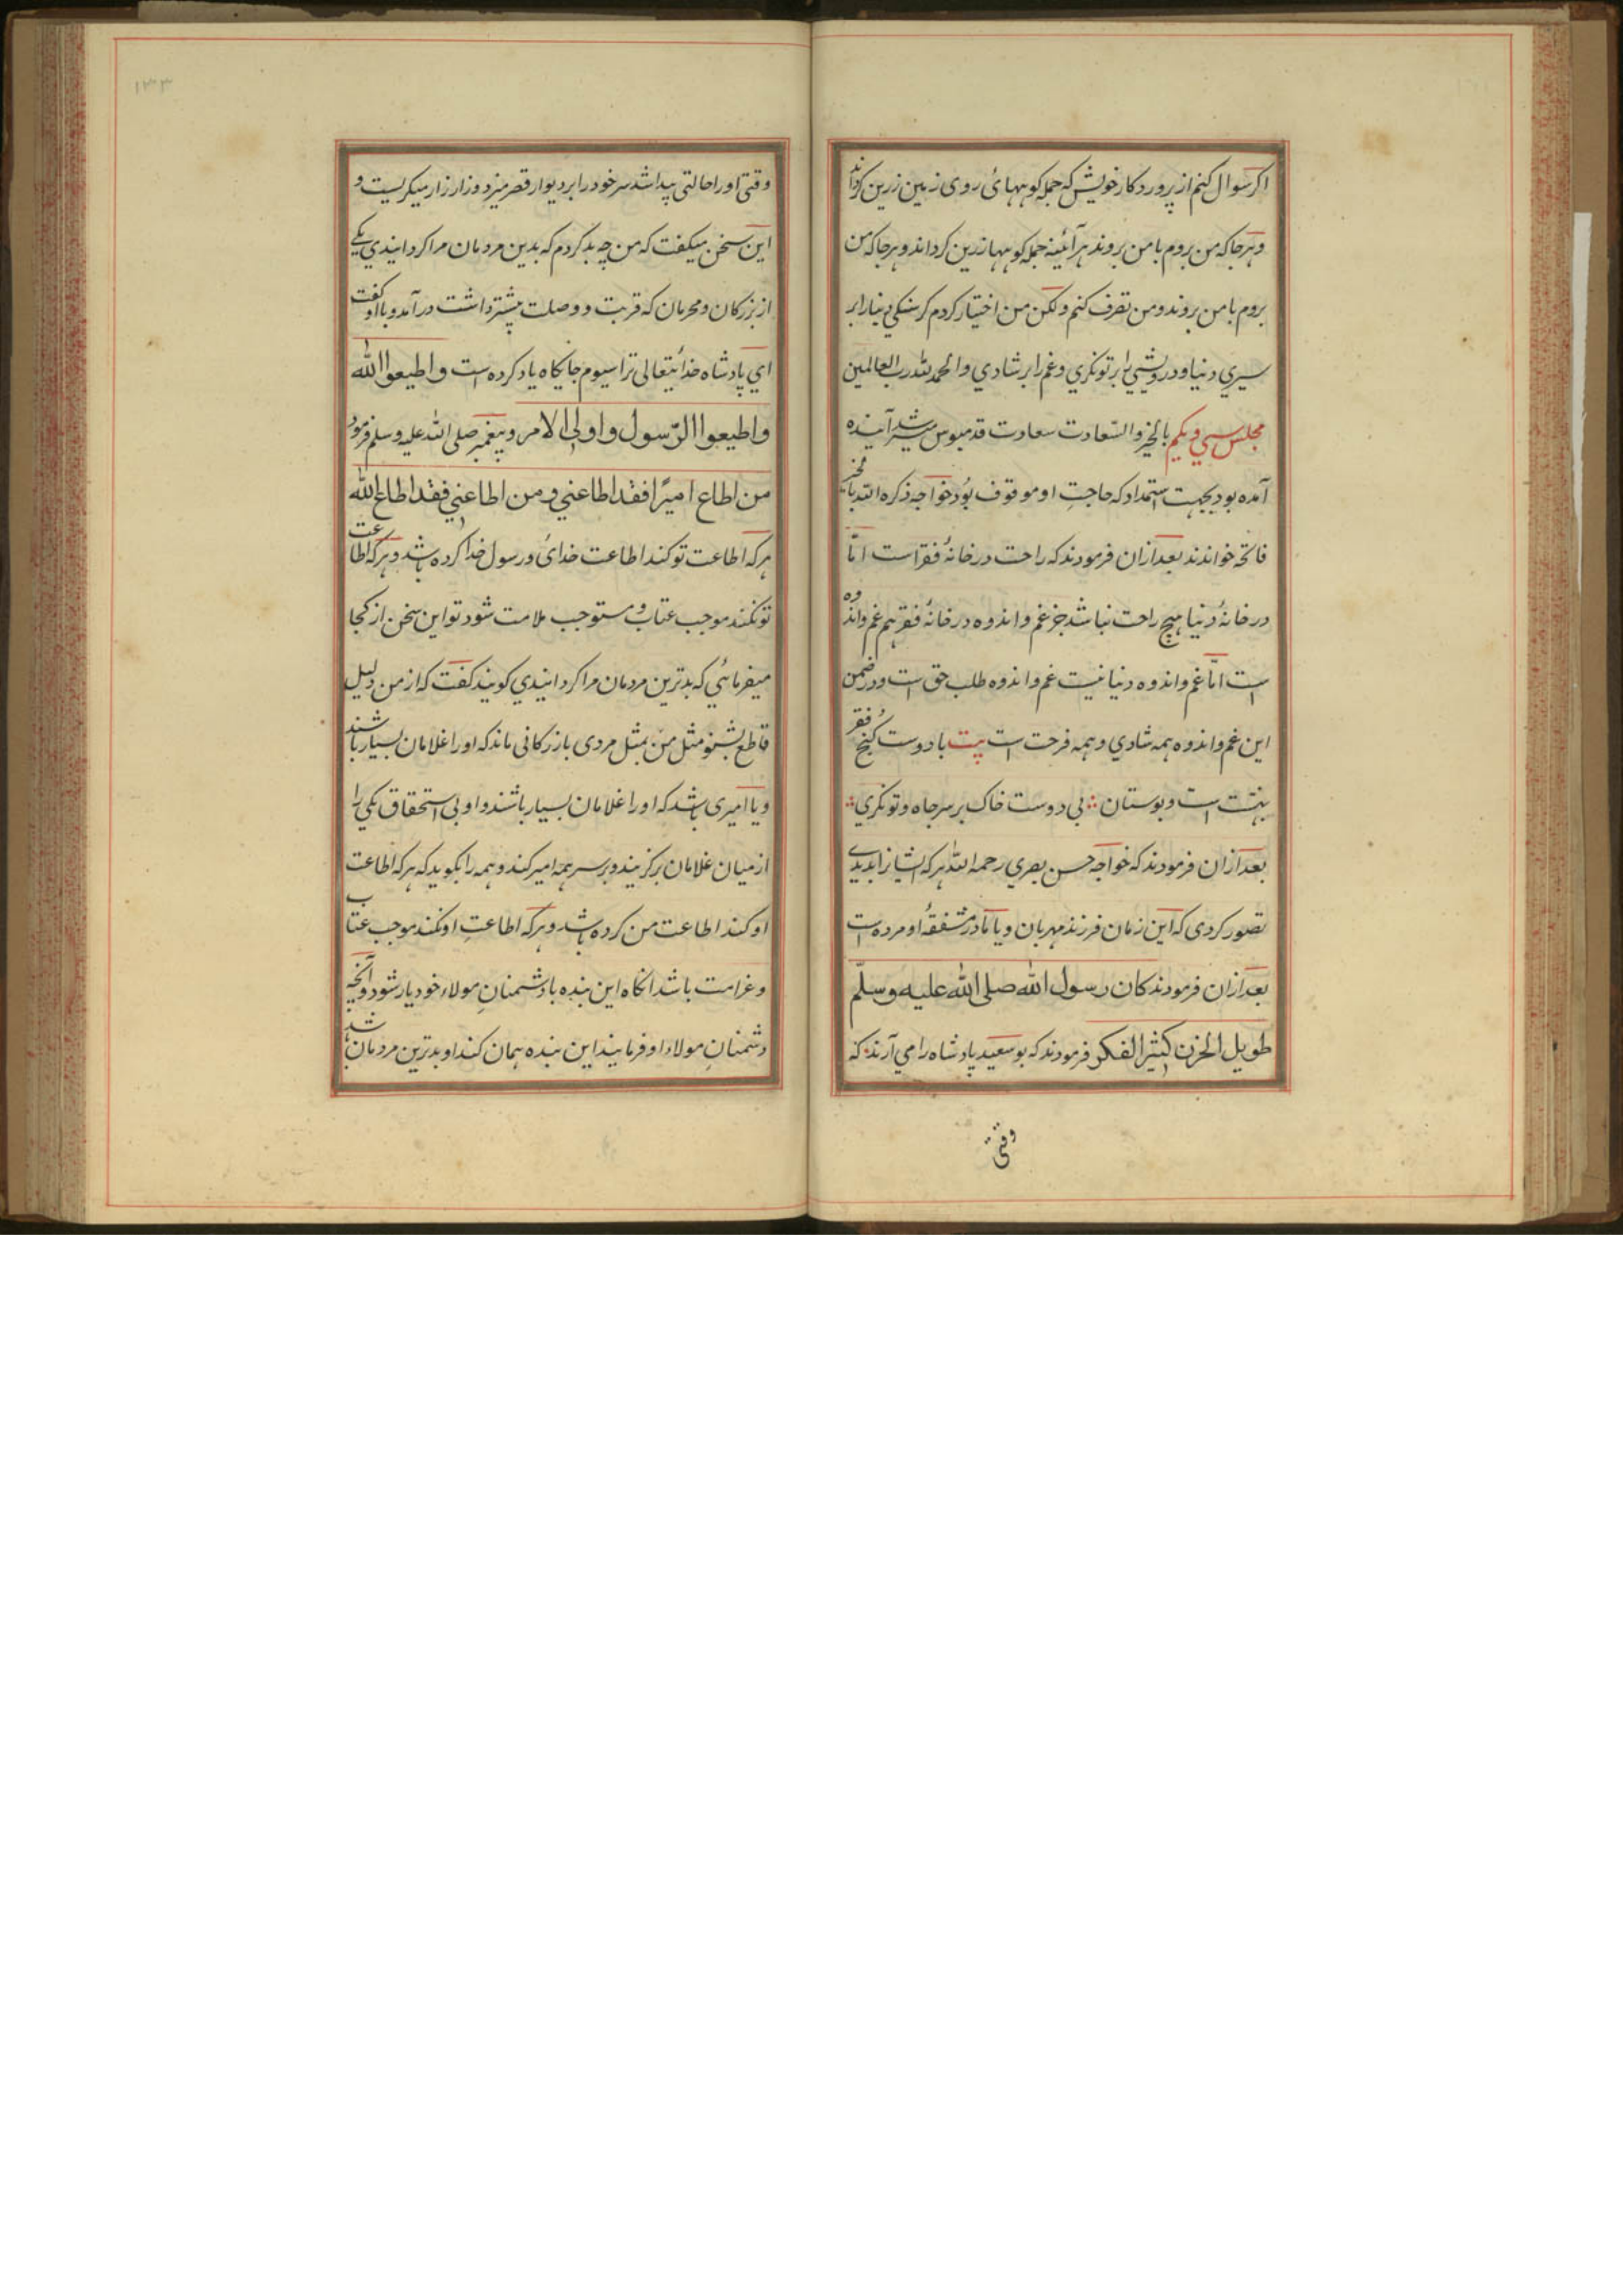 اکر سوال کنم از پروردکار خویش که جمله کوههائی روی زمین زرین کرداند
وهر جا که من بروم با من بروند هر آئینه جمله کوهها زرین کرداند و هر جا که من
بروم با من بروند و من تصرف کنم ولکن من اختیار کردم کرسنکی دنیا را بر
سیری دنیا و درویشی را بر تونکری و غم را بر شادی والحمد لله رب العالمین
مجلس سی و یکم بالخیر والسعادت سعادت قدمبوس میسر شد آینده
آمده بود بجهت استمداد که حاجتِ او موقوف بُود خواجه ذکره الله بالخیر
فاتحه خواندند بعد ازان فرمودند که راحت در خانهٔ فقر است امّا
در خانهٔ دنیا هیچ راحت نباشد جز غم و اندوه در خانهٔ فقر هم غم و اندوه
است امّا غم و اندوه دنیا نیست غم و اندوه طلب حق است و در ضمن
این غم و اندوه همه شادی و همه فرحت است بیت با دوست کنج فقر
بهشت است و بوستان ؞ بی دوست خاک بر سر جاه و تونکری ؞
بعد ازان فرمودند که خواجه حسن بصری رحمه الله هر که ایشانرا بدیدی
تصور کردی که این زمان فرزند مهربان و یا مادر مشفقهٔ او مرده است
بعد ازان فرمودند کان رسول الله صلی الله علیه وسلّم
طویل الحزن کثیر الفکر فرمودند که بو سعید پادشاه را می آرند که
وقتی
۱۳۳
وقتی او را حالتی پیدا شد سر خود را بر دیوار قصر میزد و زار زار میکریست و
این سخن میکفت که من چه بد کردم که بدین مردمان مرا کردانیدی یکی
از بزرکان و محرمان که قربت و وصلت بیشتر داشت در آمد و با او کفت
ای پادشاه خدائیتعالی ترا سیوم جایکاه یاد کرده است واطیعوا الله
واطیعوا الرّسول واولی الامر و پیغمبر صلی الله علیه وسلم فرمود
من اطاع امیرًا فقد اطاعنی ومن اطاعنی فقد اطاع الله
هر که اطاعت تو کند اطاعت خدائ و رسول خدا کرده باشد و هر که اطاعت
تو نکند موجب عتاب و مستوجب ملامت شود تو این سخن از کجا
میفرمائی که بدترین مردمان مرا کردانیدی کویند کفت که از من دلیل
قاطع بشنو مثل من بمثل مردی بازرکانی ماند که او را غلامان بسیار باشند
و یا امیری باشد که او را غلامان بسیار باشند و او بی استحقاق یکی را
از میان غلامان برکزیند و بر سر همه امیر کند و همه را بکوید که هر که اطاعت
او کند اطاعت من کرده باشد و هر که اطاعتِ او نکند موجب عتاب
و غرامت باشد انکاه این بنده با دشمنانِ مولاء خود یار شود و آنچه
دشمنانِ مولاء او فرمایند این بنده همان کند او بدترین مردمان باشد